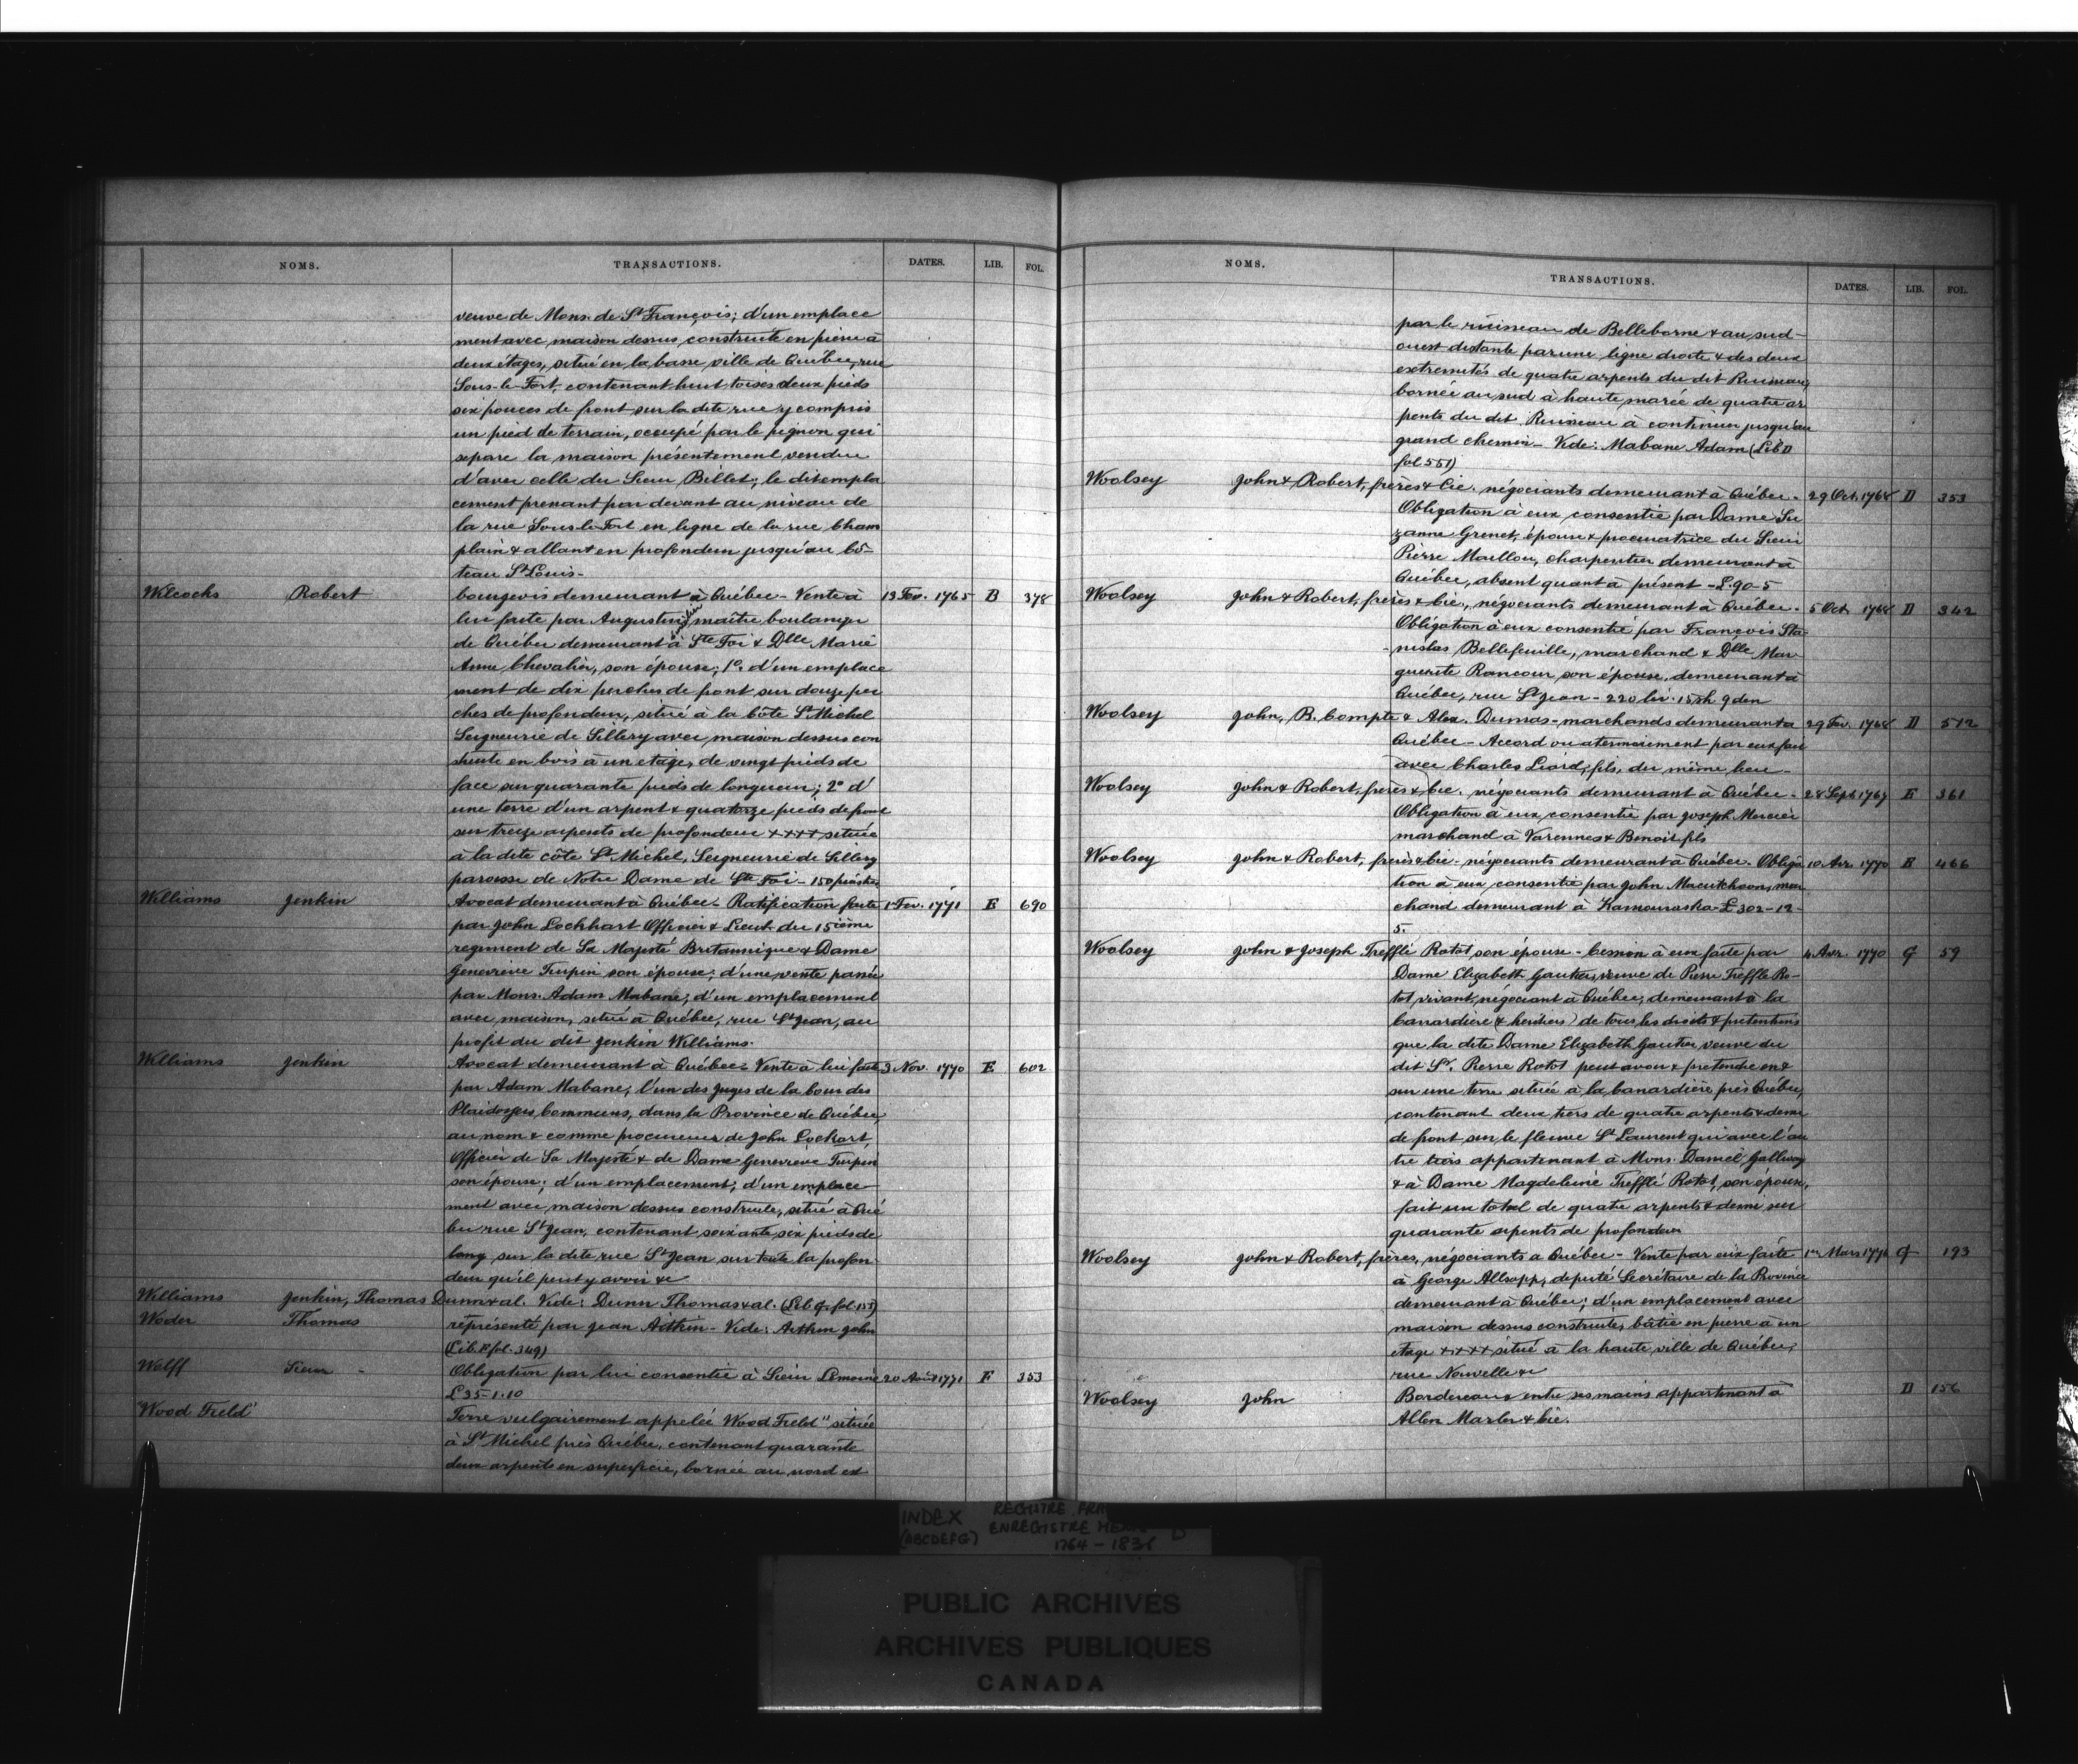 NOMS. TRANSACTIONS. DATES. LIB. FOL.
veuve de Mons. de St François; d'un emplace
ment avec maison dessus construite en pierre à
deux étages, situé en la basse ville de Québec, rue
Sous-le-Fort, contenant huit toises deux pieds
six pouces de front sur la dite rue y compris
un pied de terrain, occupé par le pignon qui
separe la maison présentement vendue
d'avec celle du Sieur Billet; le dit empla
cement prenant par devant au niveau de
la rue Sous-le-Fort en ligne de la rue Cham
plain & allant en profondeur jusqu'au Cô-
teau St Louis-
Wilcocks Robert bourgeois demeurant à Québec - Vente à 13 Fev. 1765 B 378
lui faite par Augustin maître boulanger
de Québec demeurant à Ste Foi & Dlle Marie
Anne Chevalier, son épouse; 1º. d'un emplace
ment de dix perches de front sur douze per
ches de profondeur, situé à la Côte St Michel
Seigneurie de Sillery avec maison dessus con
struite en bois à un etage, de vingt pieds de
face sur quarante pieds de longueur; 2º d'
une terre d'un arpent & quatorze pieds de front
sur treize arpents de profondeur ++++ située
à la dite côte St Michel, Seigneurie de Sillery
paroisse de Notre Dame de Ste Foi - 150 piastres
Williams Jenkin Avocat demeurant à Québec - Ratification faite 1r Fev. 1771 E 690
par John Lockhart Officier & Lieut. du 15ième
regiment de Sa Majesté Britannique & Dame
Geneviève Turpin son épouse; d'une vente passée
par Mons. Adam Mabane; d'un emplacement
avec maison, situé à Québec, rue St Jean, au
profit du dit Jenkin Williams.
Williams Jenkin Avocat demeurant à Québec - Vente à lui faite 3 Nov. 1770 E 602
par Adam Mabane; l'un des Juges de la Cour des
Plaidoyers Communs, dans la Province de Québec,
au nom & comme procureur de John Lockart,
Officier de Sa Majesté & de Dame Geneviève Turpin
son épouse; d'un emplacement; d'un emplace
ment avec maison dessus construite, situé à Qué
bec rue St Jean, contenant soixante six pieds de
long sur la dite rue St Jean sur toute la profon-
deur qu'il peut y avoir &c
Williams Jenkin, Thomas Dunn & al. Vide: Dunn Thomas & al. (Lib G. fol. 155)
Woder Thomas représenté par Jean Aitkin - Vide: Aitkin John
(Lib. E fol. 349)
Wolff Sieur - Obligation par lui consentie à Sieur Lemoine 20 Août 1771 F 353
£35-1.10
"Wood Field" Terre vulgairement appelée "Wood Field" située
à St Michel près Québec, contenant quarante
deux arpents en superficie, bornée au nord est
NOMS. TRANSACTIONS. DATES. LIB. FOL.
par le ruisseau de Belleborne & au sud-
ouest distante par une ligne droite & des deux
extremités de quatre arpents du dit Ruisseau,
bornée au sud à haute marée de quatre ar
pents du dit Ruisseau à continuer jusqu'au
grand chemin - Vide: Mabane Adam (Lib D
fol 551)
Woolsey John & Robert, frères & Cie. négociants demeurant à Québec - 29 Oct. 1768 D 353
Obligation à eux consentie par Dame Su
zanne Grenet, épouse & procuratrice du Sieur
Pierre Maillou, charpentier demeurant à
Québec, absent quant à présent - £.90-5
Woolsey John & Robert, frères & Cie., négociants demeurant à Québec - 5 Oct. 1768 D 342
Obligation à eux consentie par François Sta
-nislas Bellefeuille, marchand & Dlle Mar
guerite Rancour son épouse, demeurant à
Québec, rue St Jean - 220 liv. 15 sh 9 den
Woolsey John, B. Compte & Alex. Dumas - marchands demeurant à 29 Fev. 1768 D 512
Québec - Accord ou atermoiement par eux fait
avec Charles Liard, fils, du même lieu -
Woolsey John & Robert, frères & Cie. négociants demeurant à Québec - 28 Sept. 1769 E 361
Obligation à eux consentie par Joseph Mercier
marchand à Varennes & Benoit fils
Woolsey John & Robert, frères & Cie - négociants demeurant à Québec. Obliga 10 Avr. 1770 E 466
tion à eux consentie par John Macutcheon, mar
chand demeurant à Kamouraska - £302-12-
5.
Woolsey John & Joseph Trefflé Rotot son épouse - Cession à eux faite par 4 Avr. 1770 G 59
Dame Elizabeth Gautier, veuve de Pierre Trefflé Ro-
tot, vivant, négociant à Québec, demeurant à la
Canardière (& héritiers) de tous les droits & prétentions
que la dite Dame Elizabeth Gautier, veuve du
dit Sr. Pierre Rotot peut avoir & pretendre en &
sur une terre située à la Canardière, près Québec,
contenant deux tiers de quatre arpents & demi
de front sur le fleuve St Laurent qui avec l'au
tre tiers appartenant à Mons. Daniel Galloway
& à Dame Magdeleine Trefflé Rotot, son épouse,
fait un total de quatre arpents & demi sur
quarante arpents de profondeur
Woolsey John & Robert, frères, négociants à Québec - Vente par eux faite 1er Mars 1776 G 193
à George Allsopp, deputé Secrétaire de la Province
demeurant à Québec; d'un emplacement avec
maison dessus construite, bâtie en pierre à un
etage ++++ situé à la haute ville de Québec,
rue Nouvelle &c
Woolsey John Bordereaux entre ses mains appartenant à D 156
Allen Marler & Cie.
INDEX REGISTRE FRA
(ABCDEFG) ENREGISTREMEN B
1764 - 183
PUBLIC ARCHIVES
ARCHIVES PUBLIQUES
CANADA